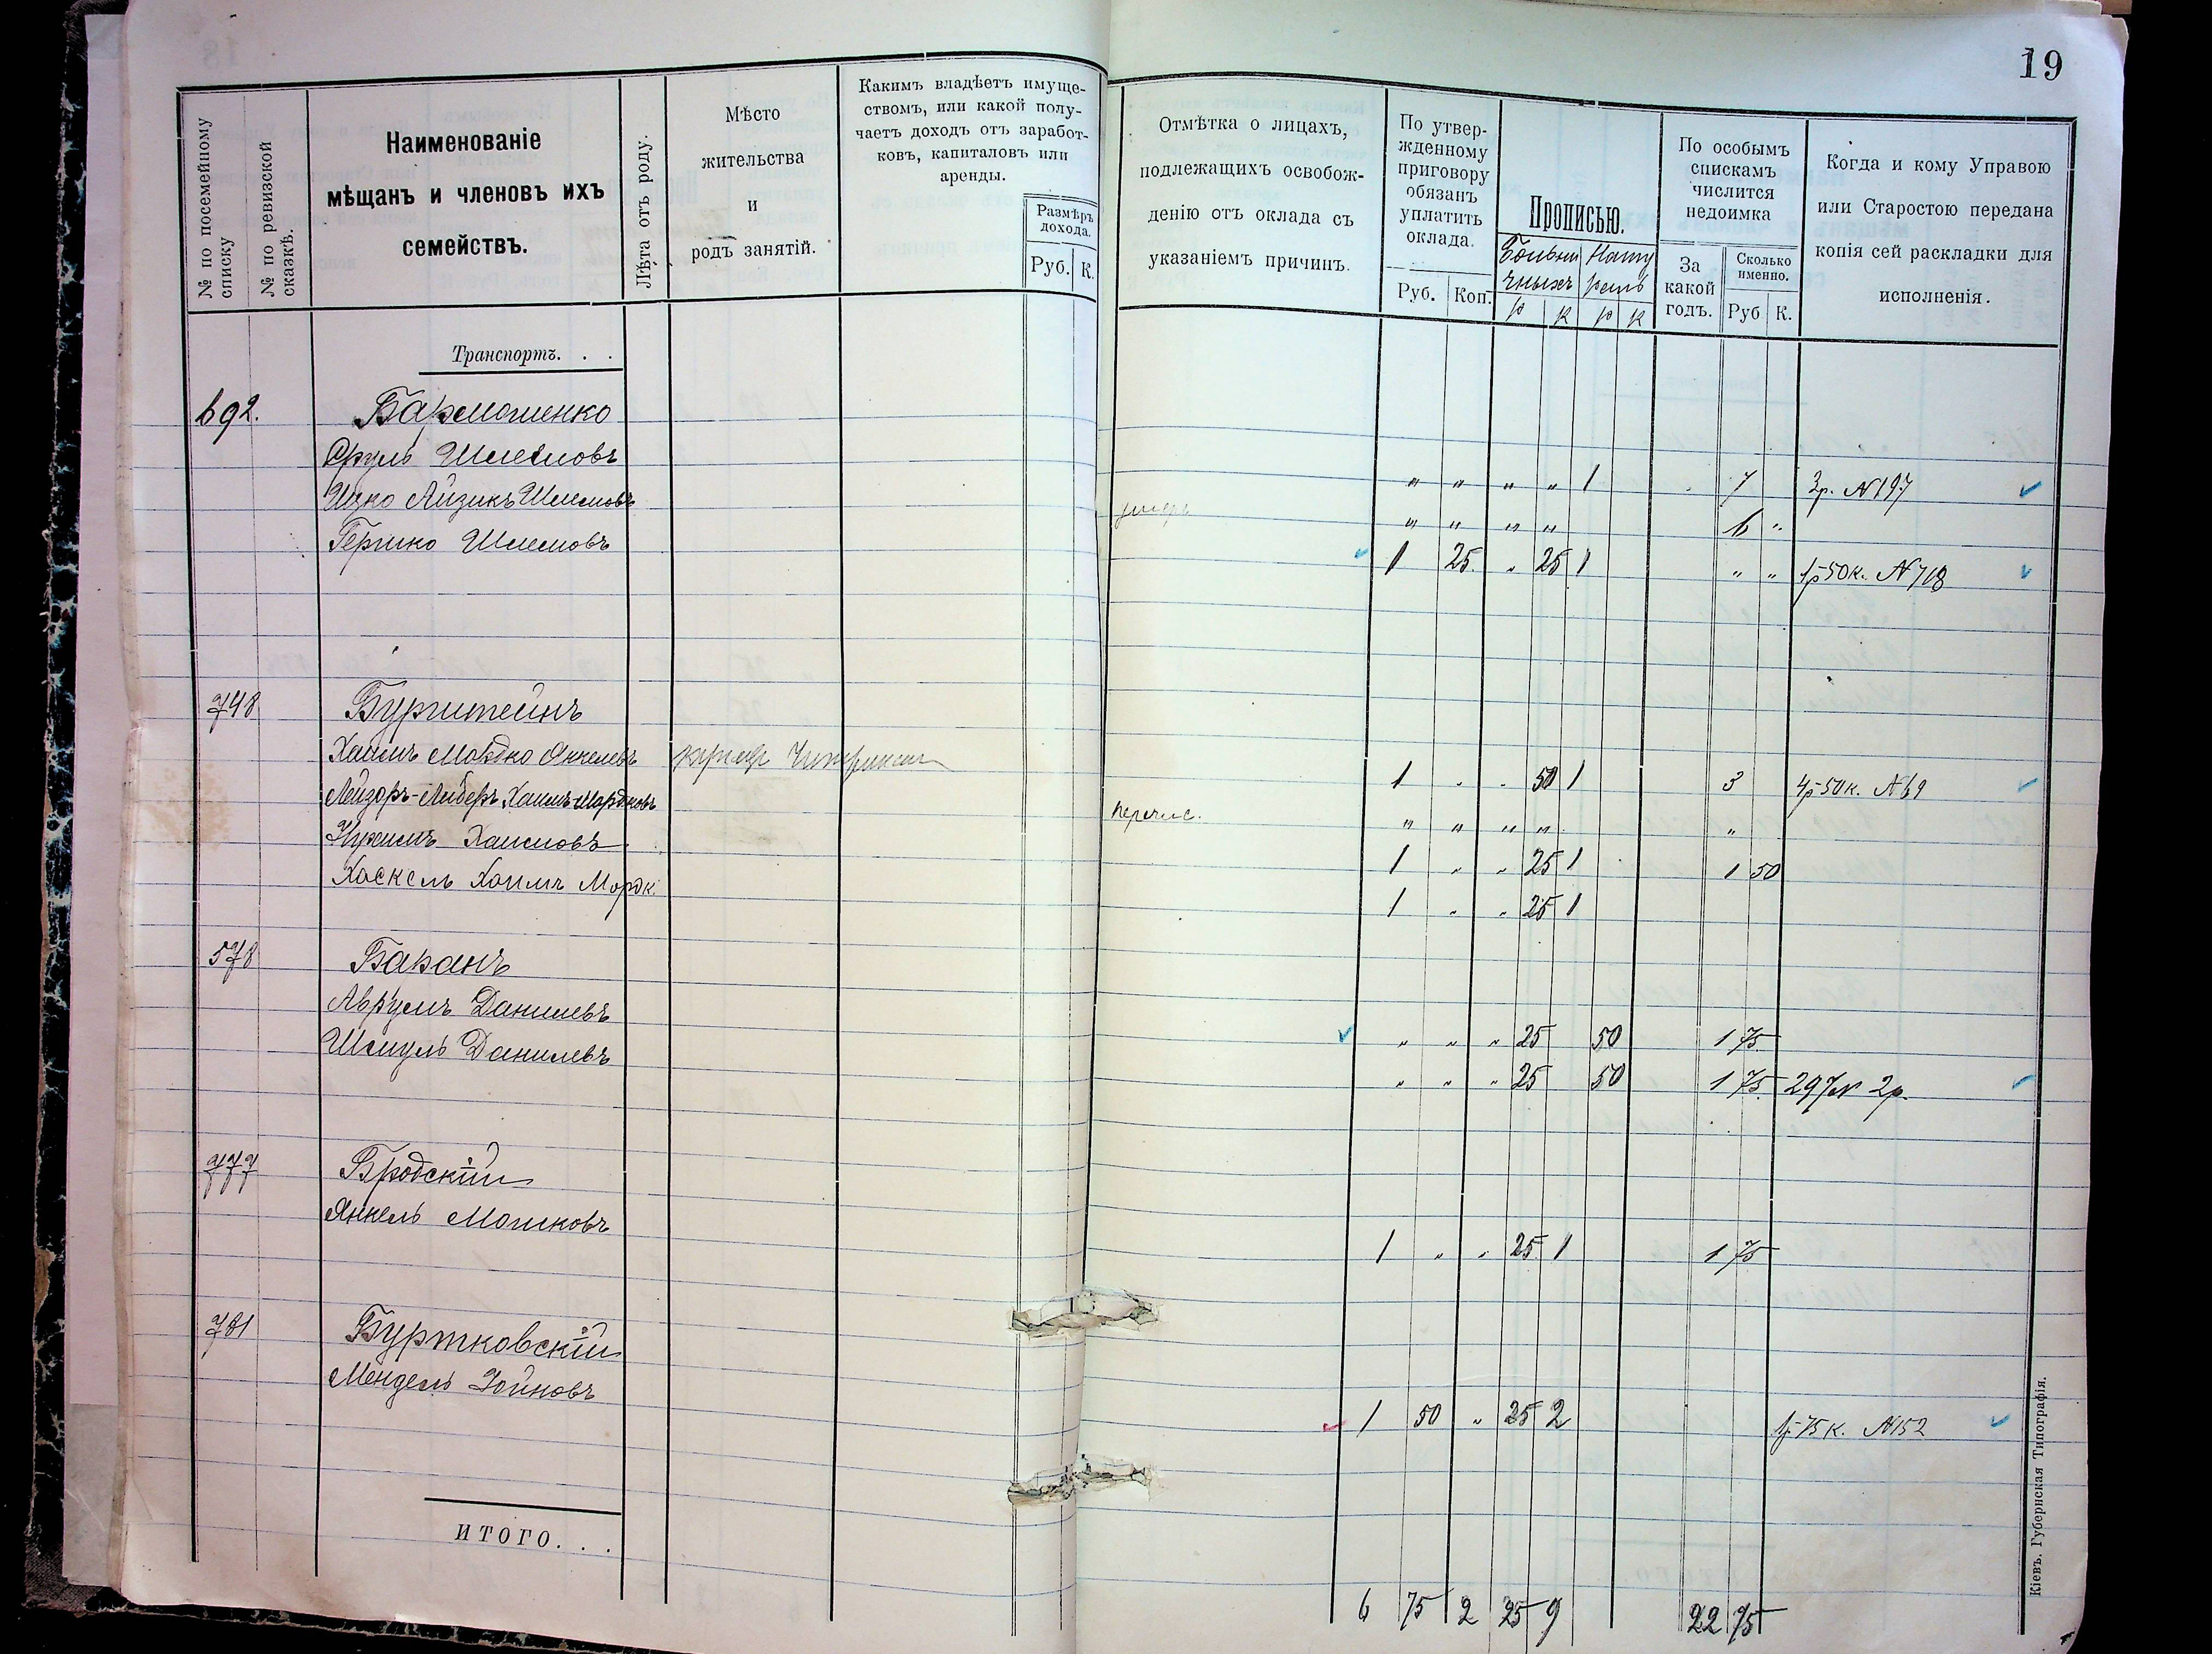 19
№ по посемейному списку
№ по ревизской сказкѣ.
Наименованіе
мѣщанъ и членовъ ихъ
семействъ.
Лѣта отъ роду.
Мѣсто
жительства
и
родъ занятій.
Какимъ владѣетъ имуще-
ствомъ, или какой полу-
чаетъ доходъ отъ заработ-
ковъ, капиталовъ или
аренды.
Размѣръ
дохода.
Руб. К.
Отмѣтка о лицахъ,
подлежащихъ освобож-
денію отъ оклада съ
указаніемъ причинъ.
По утвер-
жденному
приговору
обязанъ
уплатить
оклада.
Руб. Коп.
Прописью.
р к р к
По особымъ
спискамъ
числится
недоимка
За
какой
годъ.
Сколько
именно.
Руб К.
Когда и кому Управою
или Старостою передана
копія сей раскладки для
исполненія.
Транспортъ. . .
692. Бармошенко
Сруль Шлемовъ " " " " 1 7 3р. N197
Ицко Айзикъ Шлемовъ " " " " 6 "
Гершко Шлемовъ 1 25 " 25 1 " " 1р 50к. N718
748 Бурштейнъ
Хаимъ Мордко Янкелевъ 1 " " 50 1 3 4р 50к. N69
Лейзоръ-Либеръ Хаимъ-Мордковъ перечис. " " " " "
Нухимъ Хаимовъ 1 " " 25 1 1 50
Хаскель Хаимъ Мордк. 1 " " 25 1
578 Баранъ
Аврумъ Данилевъ " " " 25 50 1 75
Шмуль Данилевъ " " " 25 50 1 75 297N 2р.
777 Бродскій
Янкель Мошковъ 1 " " 25 1 1 75
781 Буртковскій
Мендель Іойновъ 1 50 " 25 2 1р 75к. N152
ИТОГО. . .
6 75 2 25 9 22 75
Кіевъ. Губернская Типографія.